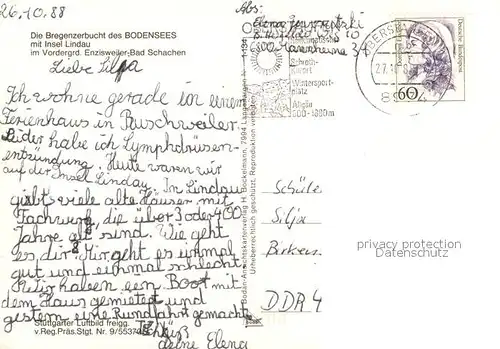 26.10.88
Die Bregenzerbucht des BODENSEES
mit Insel Lindau
im Vordergrd. Enzisweiler-Bad Schachen
Liebe Silja
Ich wohne gerade in einem
Ferienhaus in Ruschweiler.
Leider habe ich Lymphdrüsen-
entzündung. Heute waren wir
auf der Insel Linday. In Lindau
giebt viele alte Häuser mit
Fachwerg, die über 3 oder 400
Jahre alt sind. Wie geht
es dir? Mir geht es einmal
gut und einmal schlecht.
haben ein Boot mit
dem Haus gemietet und
gestern eine Rundfahrt gemacht.
Stuttgarter Luftbild freigg.
v.Reg.Präs.Stgt. Nr.
Tschüß
deine Elena
Bodan-Ansichtskartenverlag H. Bockelmann, 7994 Langenargen
Urheberrechtlich geschützt. Reproduktion verboten
Abs:
Elena
Schroth-
kurort
Wintersport-
platz
Allgäu
Deutsche Bundespost
60
Schüle
Silja
DDR 4
privacy protection
Datenschutz